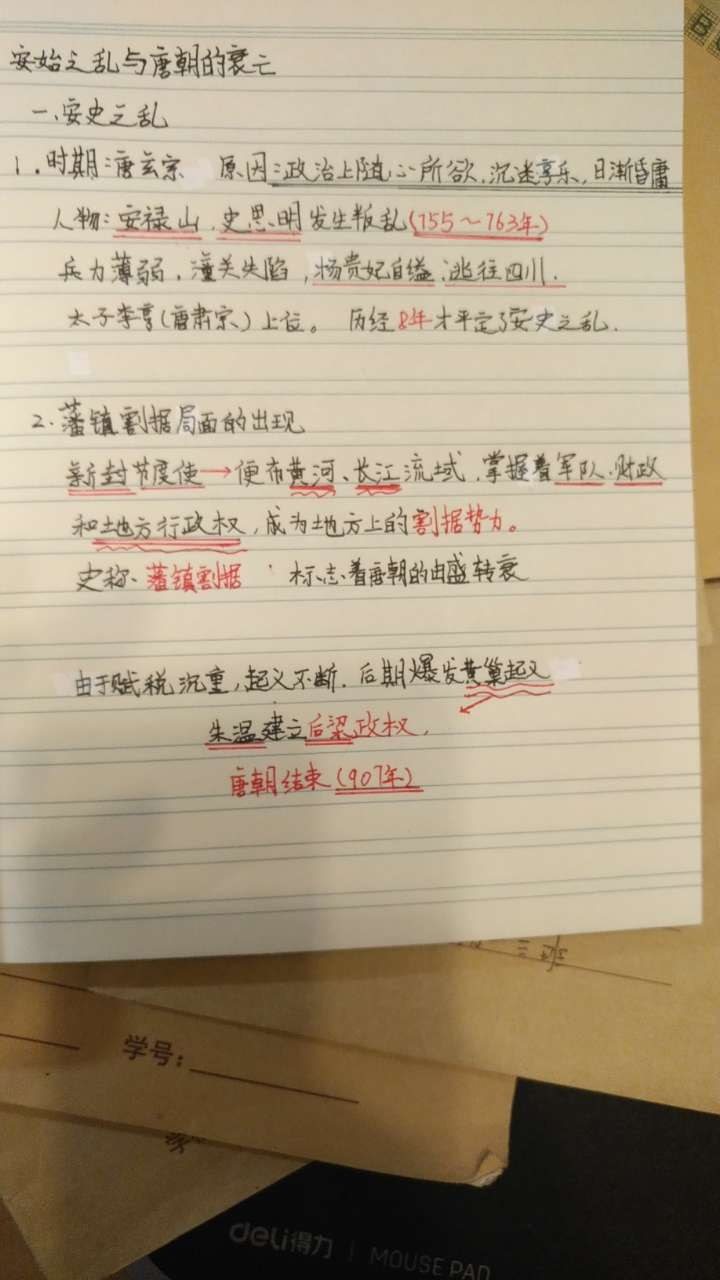 安始之乱与唐朝的衰亡
一、安史之乱
1.时期:唐玄宗 原因:政治上随心所欲,沉迷享乐,日渐昏庸
人物:安禄山,史思明发生叛乱(755~763年)
兵力薄弱,潼关失陷,杨贵妃自缢,逃往四川.
太子李亨(唐肃宗)上位。 历经8年才平定了安史之乱.
2.藩镇割据局面的出现
新封节度使→便布黄河、长江流域,掌握着军队、财政
和地方行政权,成为地方上的割据势力。
史称、藩镇割据 标志着唐朝的由盛转衰
由于赋税沉重,起义不断.后期爆发黄巢起义
朱温建立后梁政权,
唐朝结束(907年)
三班
学号:
deli得力 | MOUSE PAD